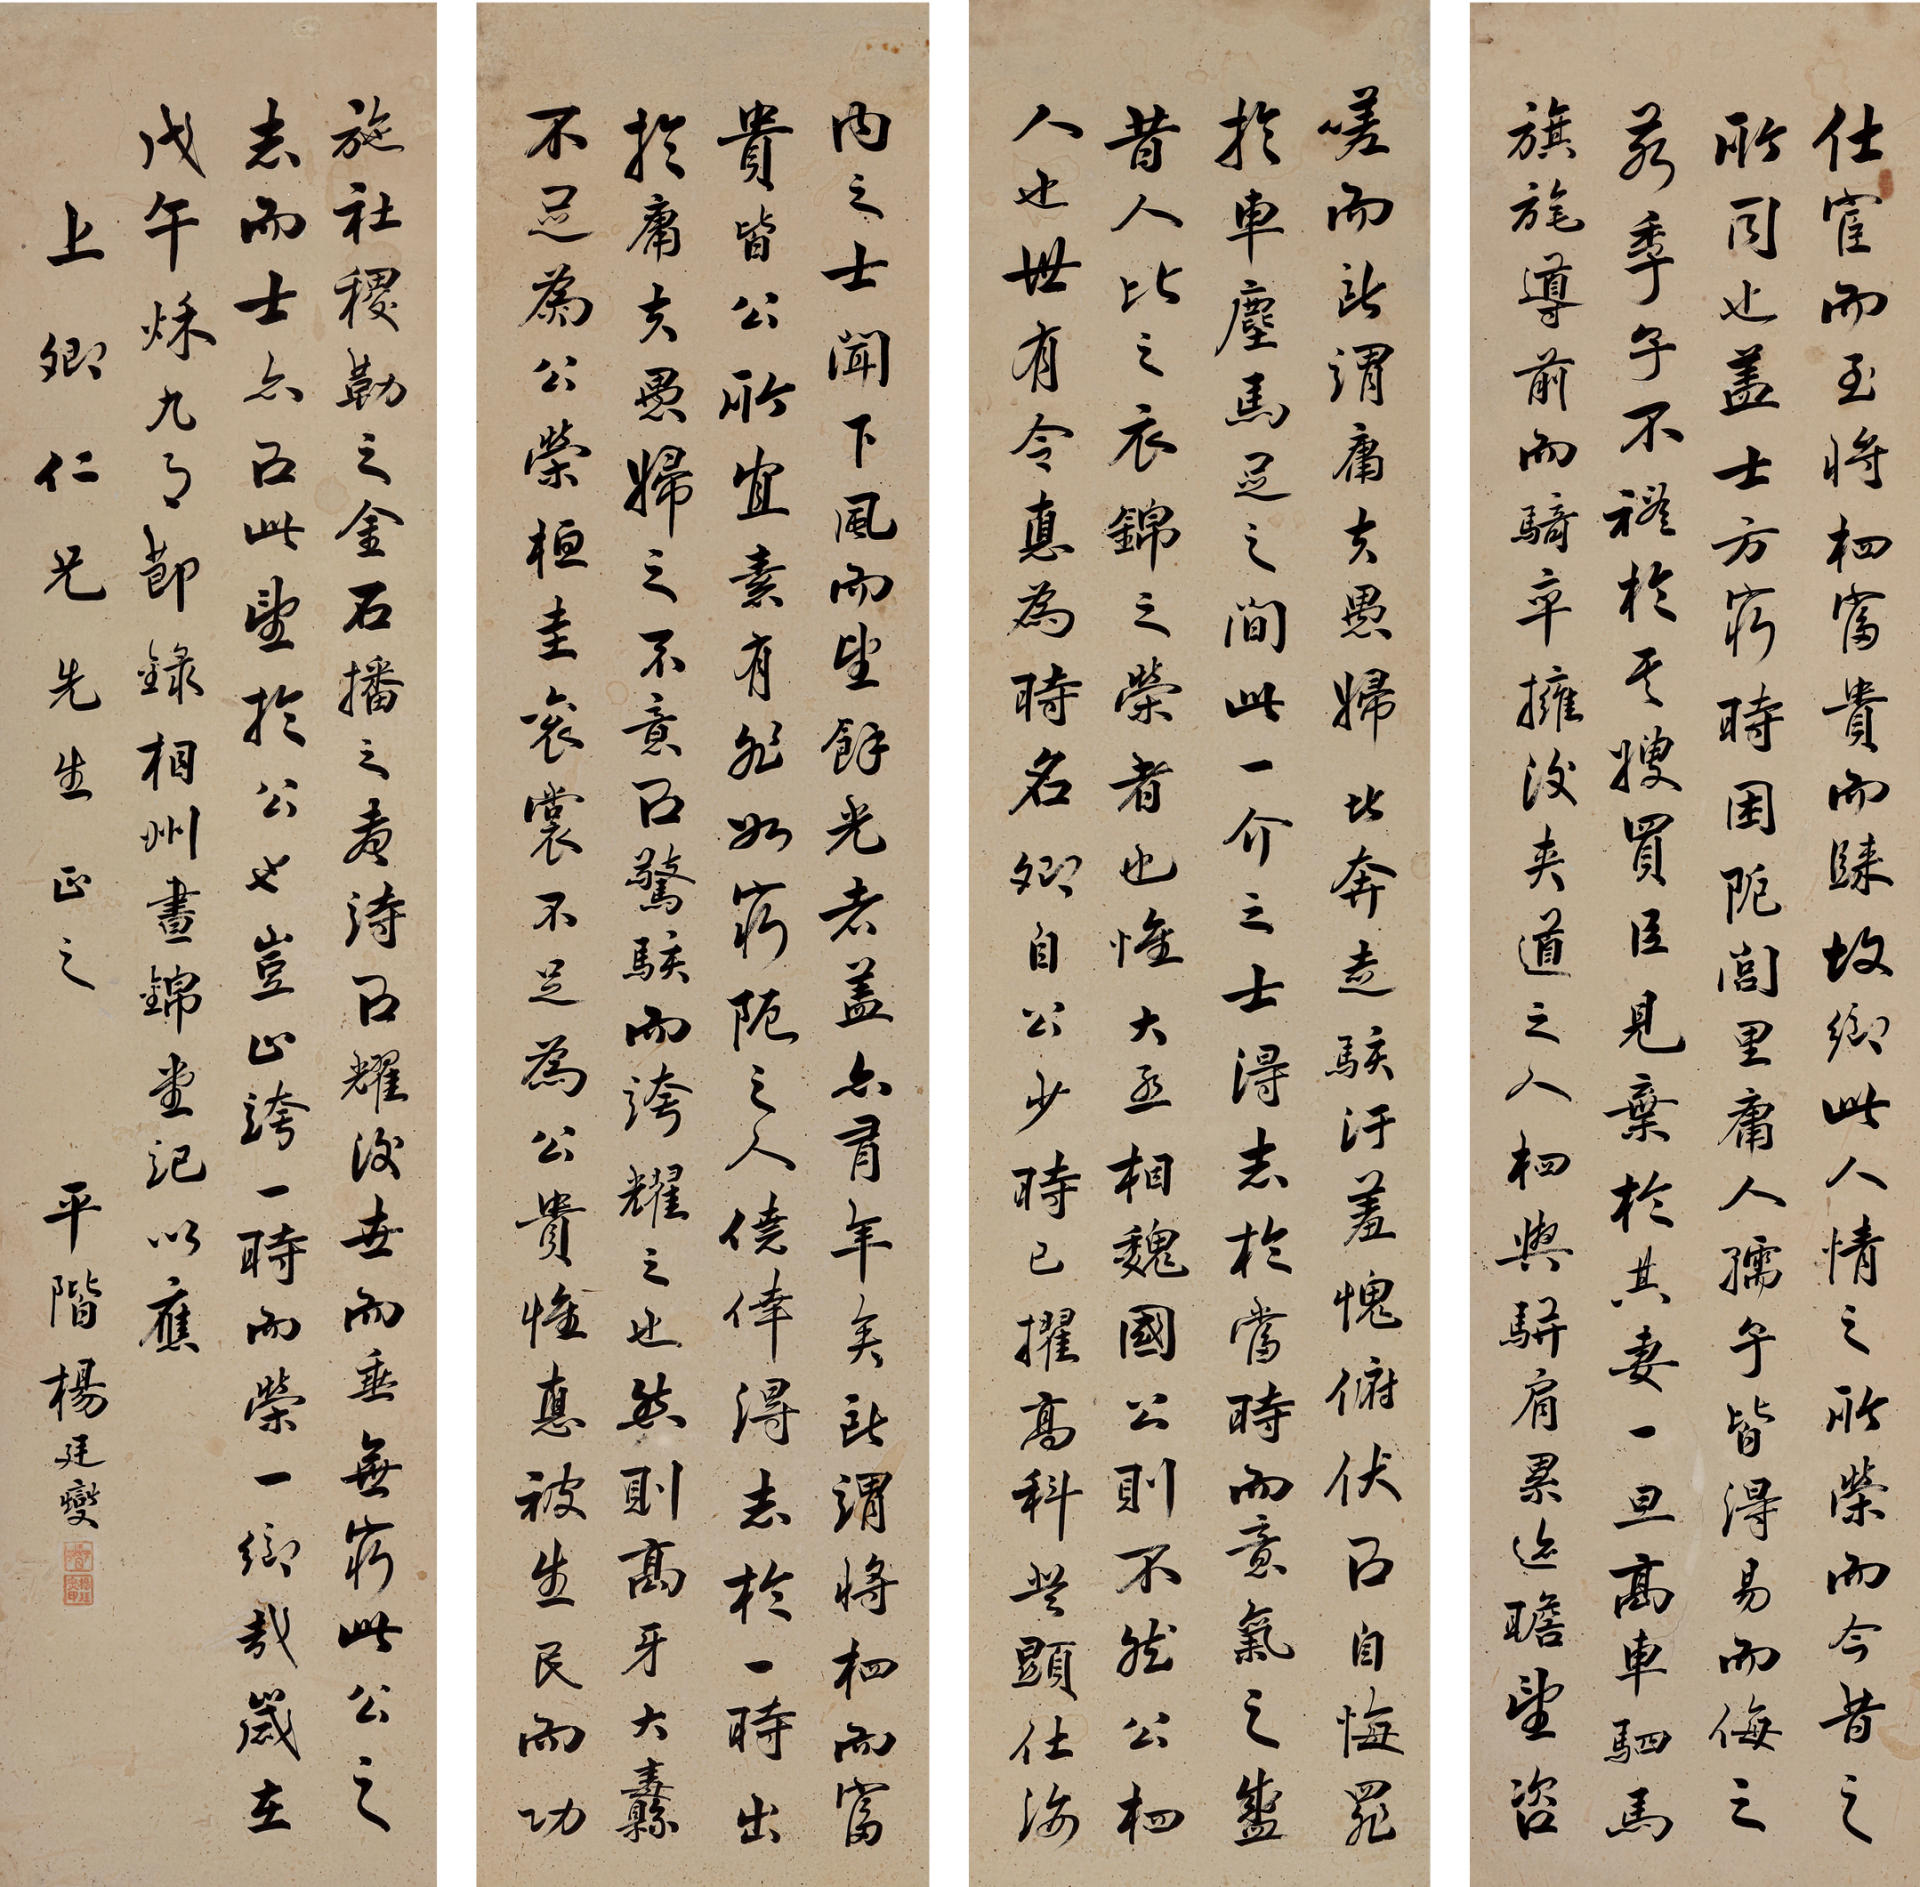 仕宦而至將相富貴而歸故鄉此人情之所榮而今昔之
所同也蓋士方窮時困阨閭里庸人孺子皆得易而侮之
若季子不禮於其嫂買臣見棄於其妻一旦高車駟馬
旗旄導前而騎卒擁後夾道之人相與駢肩累迹瞻望咨
嗟而所謂庸夫愚婦者奔走駭汗羞愧俯伏以自悔罪
於車塵馬足之間此一介之士得志於當時而意氣之盛
昔人比之衣錦之榮者也惟大丞相魏國公則不然公相
人也世有令惪為時名卿自公少時已擢高科登顯仕海
內之士聞下風而望餘光者蓋亦有年矣所謂將相而富
貴皆公所宜素有非如窮阨之人僥倖得志於一時出
於庸夫愚婦之不意以驚駭而誇耀之也然則高牙大纛
不足為公榮桓圭袞裳不足為公貴惟惪被生民而功
施社稷勒之金石播之聲詩以耀後世而垂無窮此公之
志而士亦以此望於公也豈止誇一時而榮一鄉哉歲在
戊午秋九月節錄相州晝錦堂記以應
上卿仁兄先生正之 平階楊廷燮